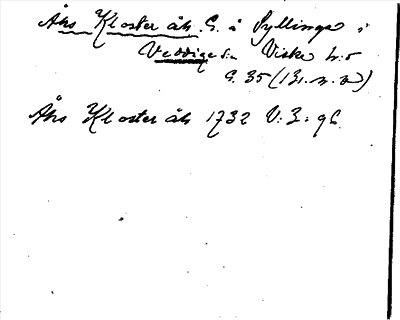 Ås Kloster äh. G. å Gyllinge i
Veddige sn Viske h:d
G. 35 (Bl. n. n)
Ås Kloster äh 1732 V. 3: 96